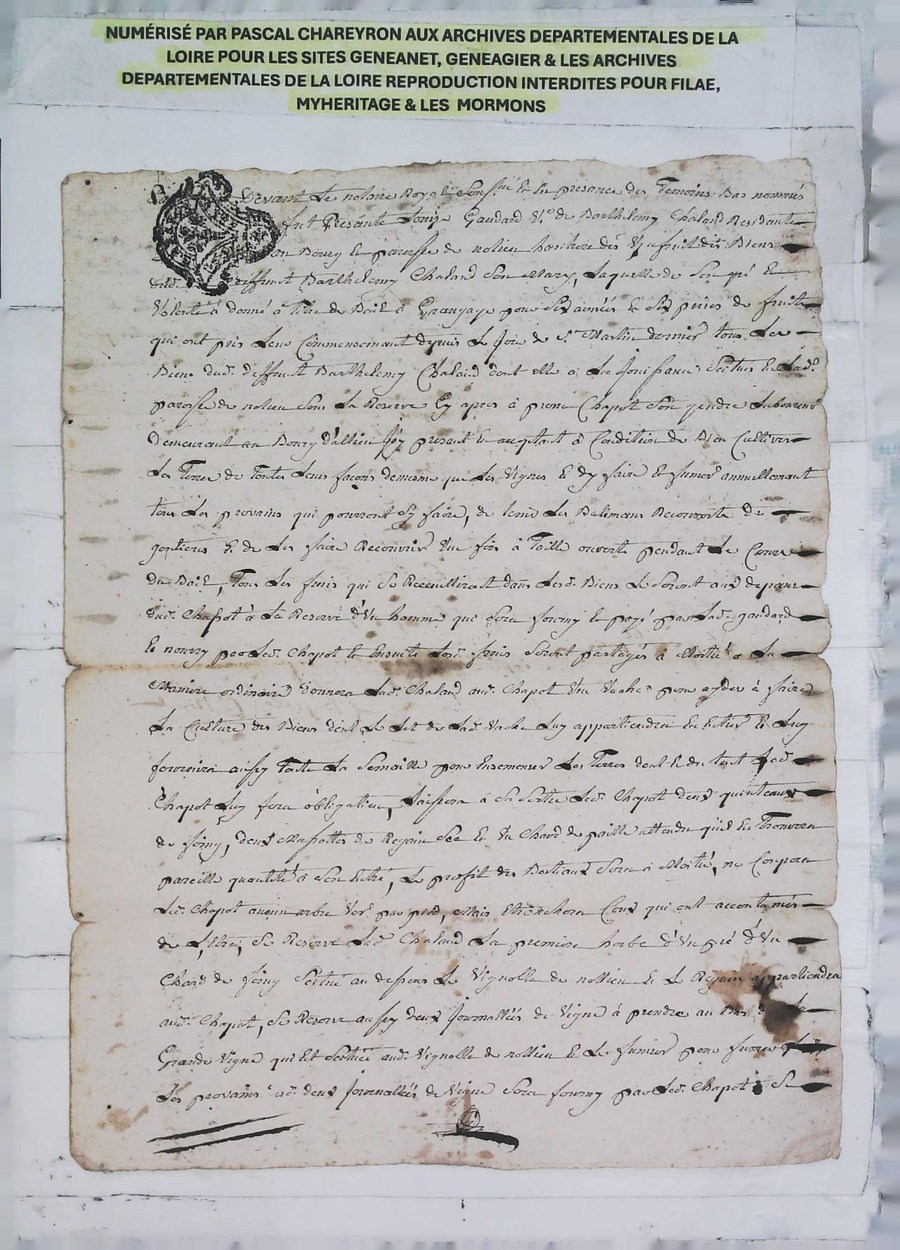 NUMÉRISÉ PAR PASCAL CHAREYRON AUX ARCHIVES DEPARTEMENTALES DE LA
LOIRE POUR LES SITES GENEANET, GENEAGIER & LES ARCHIVES
DEPARTEMENTALES DE LA LOIRE REPRODUCTION INTERDITES POUR FILAE,
MYHERITAGE & LES MORMONS
Devant Le notaire Royal Soussigné En presance des Temoins Bas nommés
fut Presante Gaudard Vve de Barthelemy Chaland Residante
au Bourg et paroisse de nolieu des Biens
deffunt Barthelemy Chaland Son Mary, Laquelle de Son gré Et
Volonté a donné à Titre de Bail à Grangage pour Six années Et Six prises de fruits
qui ont pris Leur Commencement depuis Le Jour de St Martin dernier tous Les
Biens dud. deffunt Barthelemy Chaland dont elle a Les Jouissances Scitues En Lade
paroisse de nolieu Sous La Reserve Cy apres à pierre Chapot Son gendre Laboureur
demeurant au Bourg d'allieu Icy present Et acceptant à Condition de Bien Cultiver
Les Terres de Toutes Leurs façons de meme que Les Vignes Et d'y faire Et fumer annuellement
tous Les provains qui pourront S'y faire, de tenir Les Batimans de
goutieres Et de Les faire Recouvrir Une fois à Taille ouverte pendant Le Cours
du Bail, Tous Les foins qui Se Receuilliront dans Lesd. Biens Le Seront aux depans
dud. Chapot à La Reserve d'Un homme qui Sera fourny Et payé par Lad. gaudard
Et nourry par Led. Chapot Et Ensuite Lesd. foins Seront partagés à Moitié a La
Maniere ordinaire donnera Lad. Chaland aud. Chapot Une Vache pour ayder à faire
La Culture des Biens dont Le Lait de Lad. Vache Luy appartiendra En Entier Et Luy
fournira aussy Toute La Semaille pour Ensemencer Les Terres dont Led.
Chapot Luy fera obligation, Laissera à Sa Sortie Led. Chapot deux quinteaux
de foing, deux de Regain Sec Et Un Chard de paille attendu qu'il En Trouvera
pareille quantité à Son Entré, Le profit des Bestiaux Sera à Moitié, ne Coupera
Led. Chapot aucun arbre Vert par pied, Mais Ceux qui ont accoutumés
de L'Etre, Se Reserve Lad. Chaland La premiere herbe d'Un pré d'Un
Chard de foing Scitué au dessous Le Vignolle de nollieu Et Le Regain appartiendra
aud. Chapot, Se Reserve aussy deux Journallées de Vigne à prendre au Bas de La
Grande Vigne qui Est Scituée aud. Vignolle de nollieu Et Le fumier pour fumer
Les provains des deux Journallées de Vigne Sera fourny par Led. Chapot Se